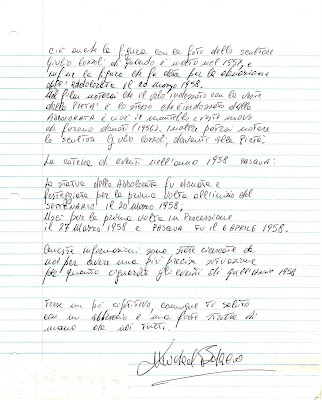 c'è anche la figura con la foto dello scultore
Giulio Cozzoli di quando è morto nel 1957, e
infine la figura che fu data per la donazione
dell'Addolorata il 20 marzo 1958.
Nel film noterai che il velo indossato con la veste
della PIETA' è lo stesso che è indossato dalla
ADDOLORATA e cioè il mantello e veste nuova
di furono donati (1956). Inoltre potrai notare
lo scultore Giulio Cozzoli, davanti alla Pietà.
La catena di eventi nell'anno 1958 PASQUA:
La statua della Addolorata fu donata e
festeggiata per la prima volta all'inizio del
SETTENARIO il 20 Marzo 1958;
Uscì per la prima volta in Processione
il 27 Marzo 1958 e PASQUA FU il 6 APRILE 1958.
Queste informazioni sono state ricercate da
noi per avere una più precisa situazione
per quanto riguarda gli eventi di quell'anno 1958
Forse un po' ripetitivo, comunque ti saluto
con un abbraccio e una forte stretta di
mano da noi tutti.